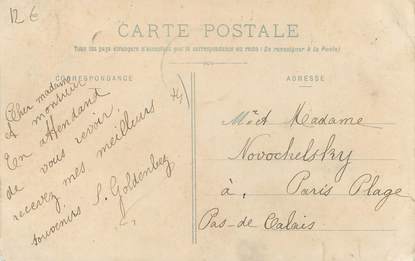 12 €
CARTE POSTALE
Tous les pays étrangers n'acceptent pas la correspondance au recto (Se renseigner à la Poste)
CORRESPONDANCE
Cher madame
et monsieur
En attendant
de vous revoir,
recevez mes meilleurs
souvenirs S. Goldenberg
ADRESSE
Mr et Madame
Novochelsky
à Paris Plage
Pas-de Calais